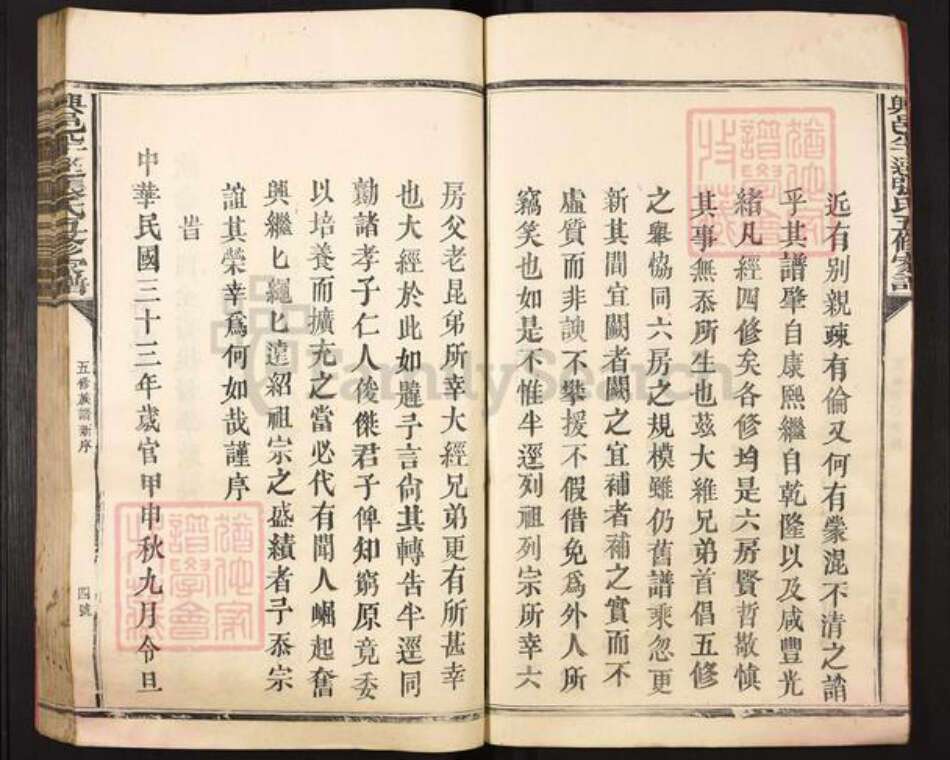 近有別親疎有倫又何有蒙混不清之誚
乎其譜肇自康熙繼自乾隆以及咸豐光
緒凡經四修矣各修均是六房賢哲敬慎
其事無忝所生也茲大維兄弟首倡五修
之舉恊同六房之規模雖仍舊譜乘忽更
新其間宜闕者闕之宜補者補之實而不
虛質而非諛不攀援不假借免為外人所
竊笑也如是不惟半逕列祖列宗所幸六
房父老昆弟所幸大經兄弟更有所甚幸
也大經於此如躄予言尚其轉告半逕同
勷諸孝子仁人俊傑君子俾知窮原竟委
以培養而擴充之當必代有聞人崛起奮
興繼匕繩匕遠紹祖宗之盛績者予忝宗
誼其榮幸為何如哉謹序
旹
中華民國三十三年歲官甲申秋九月令旦
五修族譜新序
四號
FamilySearch